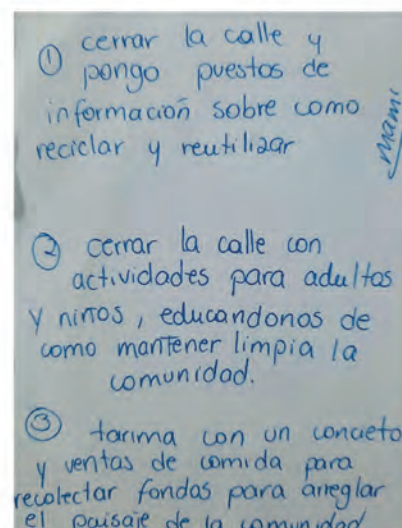 ① cerrar la calle y
pongo puestos de
información sobre como
reciclar y reutilizar
mami
② cerrar la calle con
actividades para adultos
y niños, educandonos de
como mantener limpia la
comunidad.
③ tarima con un concieto
y ventas de comida para
recolectar fondos para arreglar
el paisaje de la comunidad